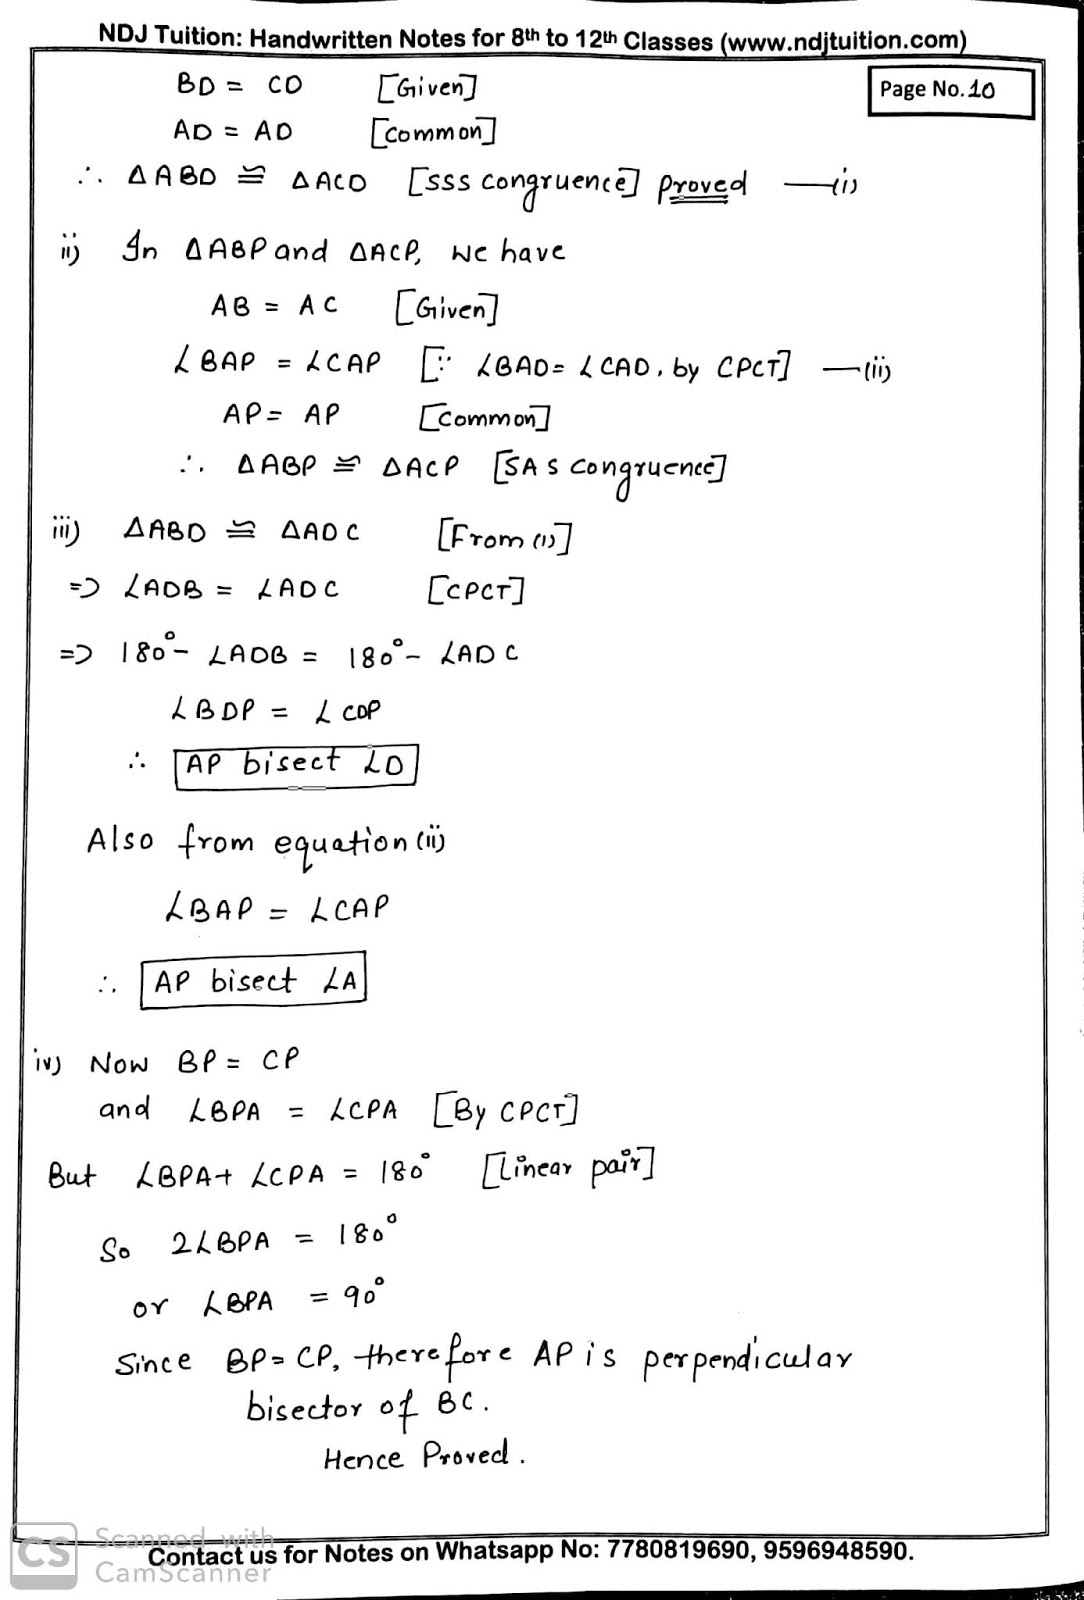 NDJ Tuition: Handwritten Notes for 8th to 12th Classes (www.ndjtuition.com)
Page No. 10
BD = CD [Given]
AD = AD [common]
∴ ΔABD ≅ ΔACD [SSS congruence] proved —(i)
ii) In ΔABP and ΔACP, we have
AB = AC [Given]
∠BAP = ∠CAP [∵ ∠BAD = ∠CAD, by CPCT] —(ii)
AP = AP [Common]
∴ ΔABP ≅ ΔACP [SAS congruence]
iii) ΔABD ≅ ΔADC [From (i)]
=> ∠ADB = ∠ADC [CPCT]
=> 180° - ∠ADB = 180° - ∠ADC
∠BDP = ∠CDP
∴ AP bisect ∠D
Also from equation (ii)
∠BAP = ∠CAP
∴ AP bisect ∠A
iv) Now BP = CP
and ∠BPA = ∠CPA [By CPCT]
But ∠BPA + ∠CPA = 180° [Linear pair]
So 2∠BPA = 180°
or ∠BPA = 90°
Since BP = CP, therefore AP is perpendicular
bisector of BC.
Hence Proved.
CS Scanned with
CamScanner
Contact us for Notes on Whatsapp No: 7780819690, 9596948590.